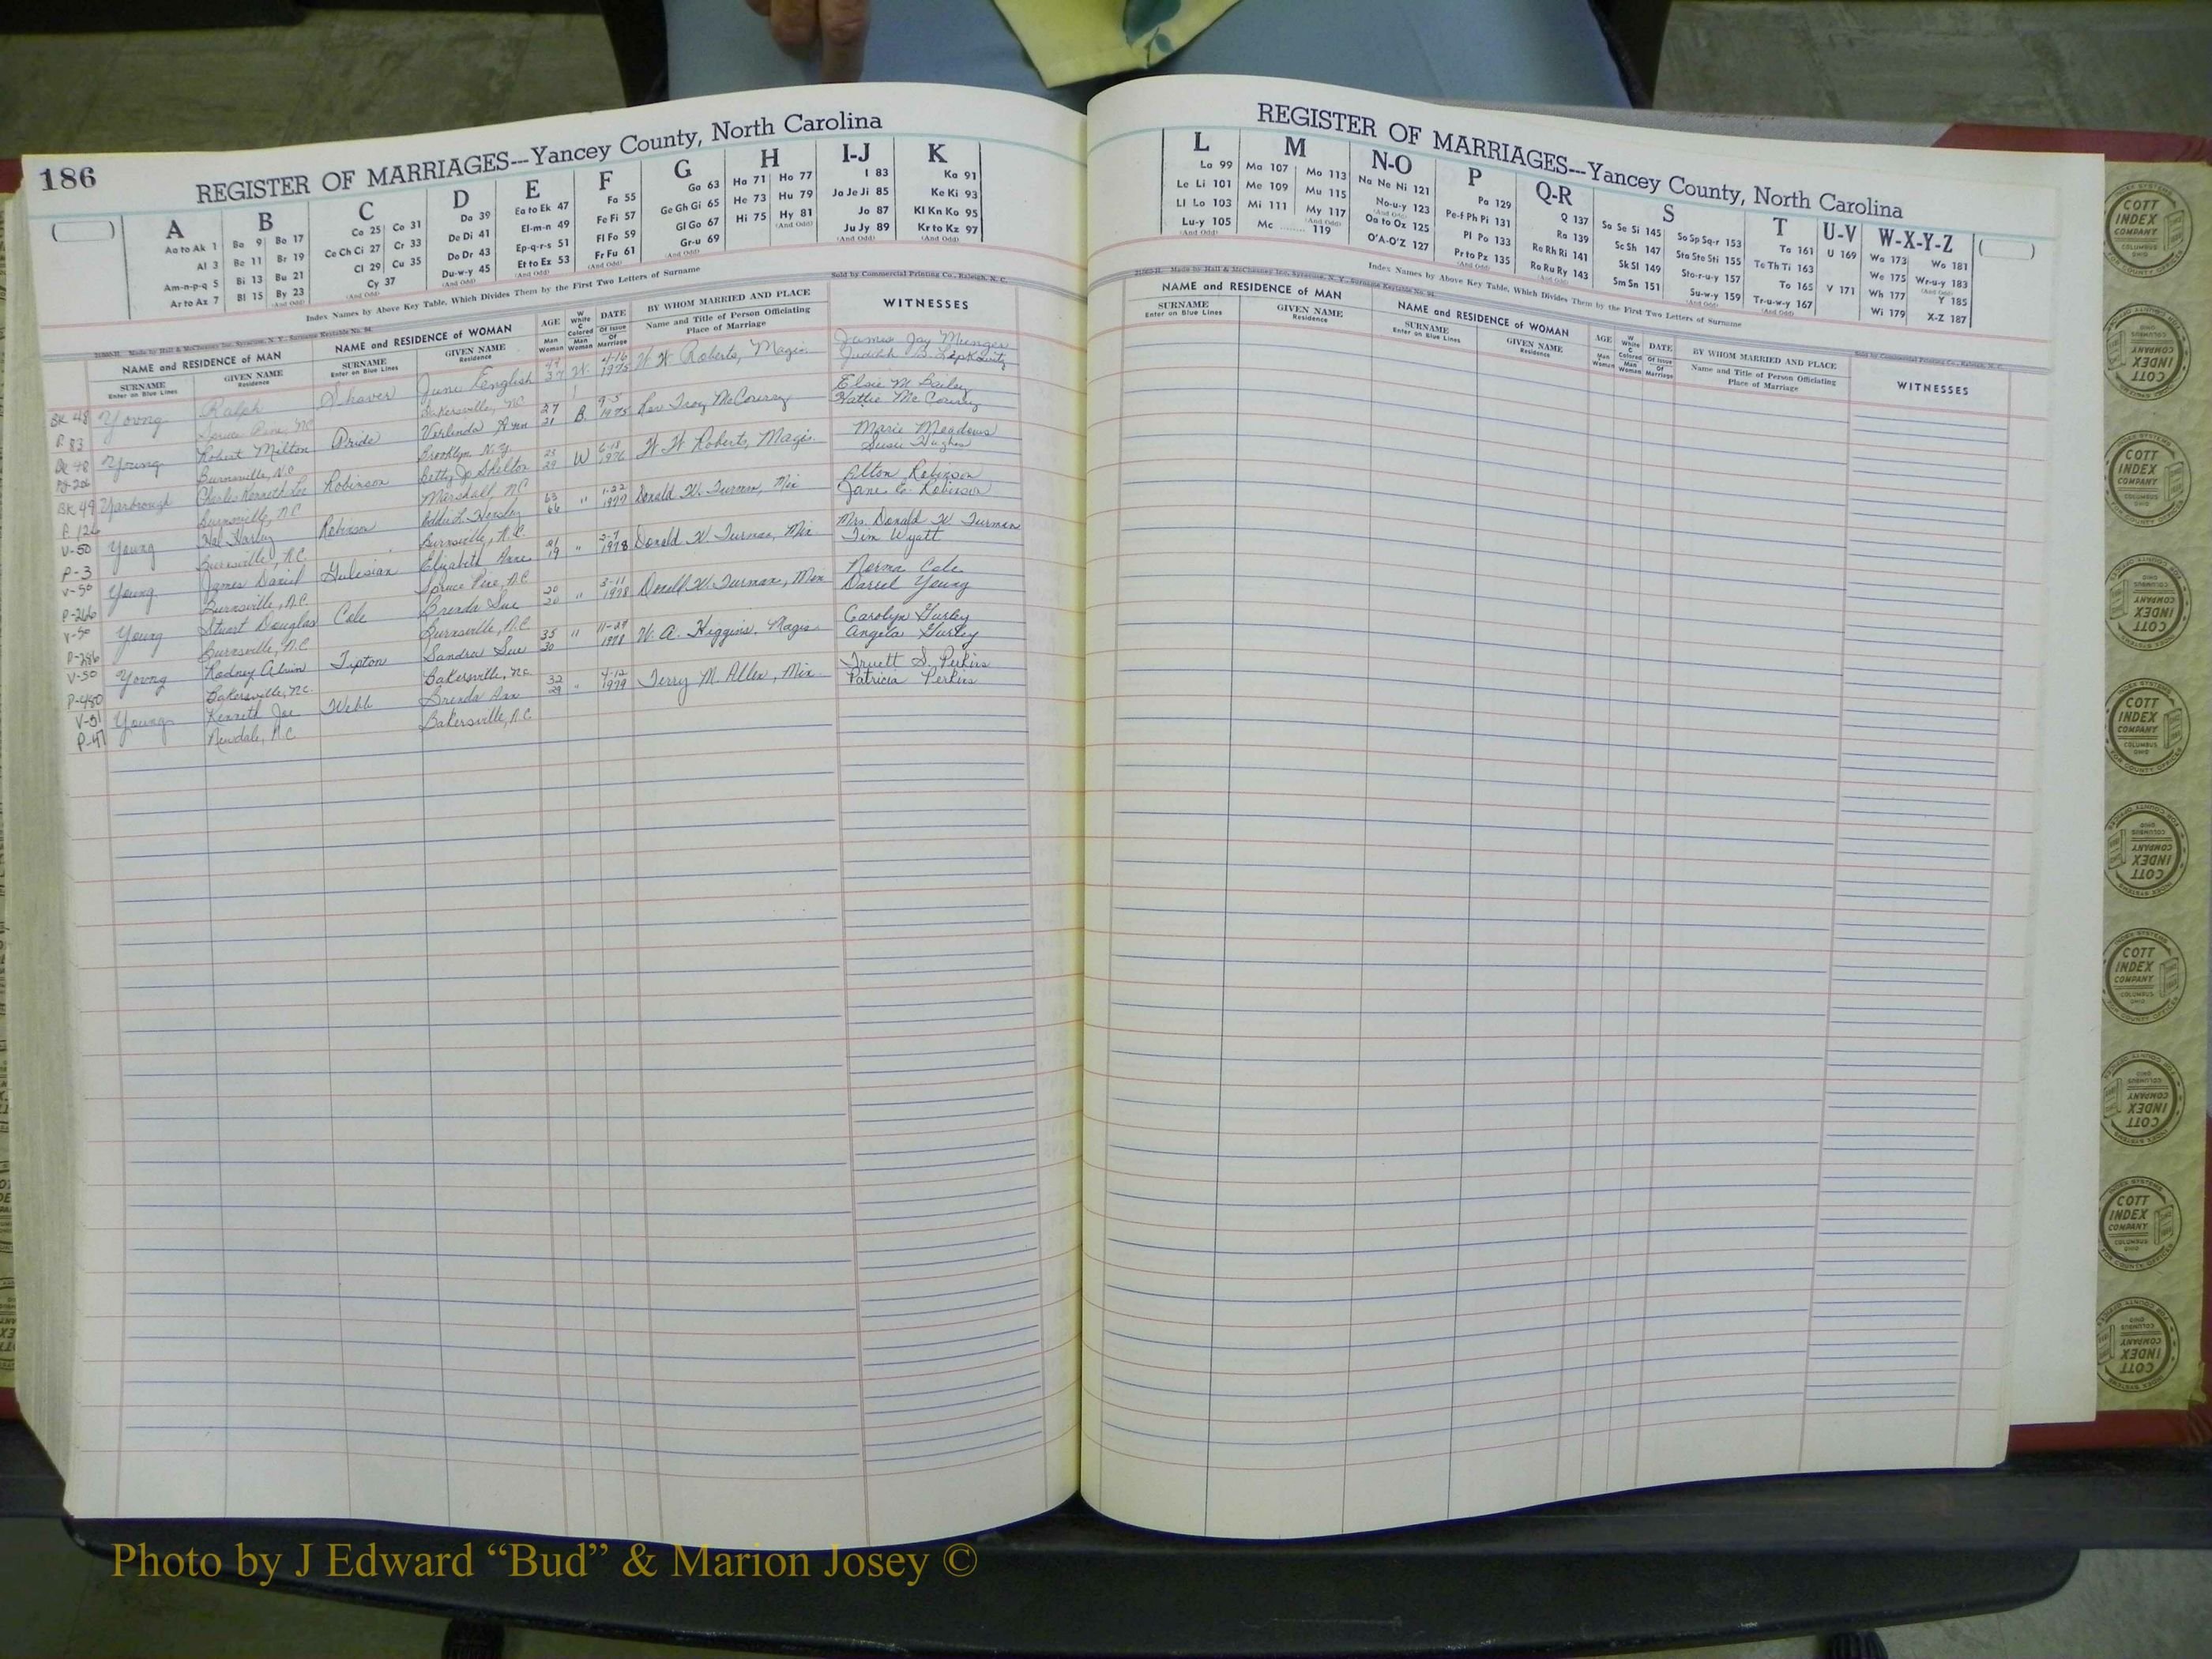 186
REGISTER OF MARRIAGES---Yancey County, North Carolina
A B C D E F G H I-J K
Aa to Ak 1
Al 3
Am-n-p-q 5
Ar to Az 7
Ba 9 Bo 17
Be 11 Br 19
Bi 13 Bu 21
Bl 15 By 23
(And Odd)
Ca 25 Co 31
Ce Ch Ci 27 Cr 33
Cl 29 Cu 35
Cy 37
(And Odd)
Da 39
De Di 41
Do Dr 43
Du-w-y 45
(And Odd)
Ea to Ek 47
El-m-n 49
Ep-q-r-s 51
Et to Ez 53
(And Odd)
Fa 55
Fe Fi 57
Fl Fo 59
Fr Fu 61
(And Odd)
Ga 63
Ge Gh Gi 65
Gl Go 67
Gr-u 69
(And Odd)
Ha 71 Ho 77
He 73 Hu 79
Hi 75 Hy 81
(And Odd)
I 83
Ja Je Ji 85
Jo 87
Ju Jy 89
(And Odd)
Ka 91
Ke Ki 93
Kl Kn Ko 95
Kr to Kz 97
(And Odd)
Index Names by Above Key Table, Which Divides Them by the First Two Letters of Surname
Made by Hall & McChesney Inc., Syracuse, N. Y., Surname Keytable No. 94
Sold by Commercial Printing Co., Raleigh, N. C.
NAME and RESIDENCE of MAN
SURNAME
Enter on Blue Lines
GIVEN NAME
Residence
NAME and RESIDENCE of WOMAN
SURNAME
Enter on Blue Lines
GIVEN NAME
Residence
AGE
Man
Woman
W
White
C
Colored
Man
Woman
DATE
Of Issue
Of
Marriage
BY WHOM MARRIED AND PLACE
Name and Title of Person Officiating
Place of Marriage
WITNESSES
BK 48 Young Ralph Shaver June English 37 W. 4-16 1975 W. W. Roberts, Magis. James Jay Munger
P. 83 Spruce Pine, NC Bakersville, NC Judith B.
BK 48 Young Robert Milton Pride Verlinda Ann 27 21 B. 9-5 1975 Rev Troy McCourry Elsie M Bailey
Burnsville, N.C. Brooklyn N.Y. Hattie McCourry
BK 49 Yarbrough Charles Kenneth Lee Robinson Betty Jo Shelton 29 W 6-18 1976 W. W. Roberts, Magis. Marie Meadows
P. 126 Burnsville, NC Marshall, NC Susie Hughes
V-50 Young Hal Harley Robinson Addie L. Hensley 63 66 " 1-22 1977 Donald W. Turman, Min Alton Robinson
P-3 Burnsville, N.C. Burnsville, N.C. Jane E. Robinson
V-50 Young James Daniel Gulesian Elizabeth Anne 21 19 " 1978 Donald W. Turman, Min Mrs. Donald W Turman
P-246 Burnsville, N.C. Spruce Pine, N.C. Tim Wyatt
V-50 Young Stuart Douglas Cole Brenda Sue 20 20 " 3-11 1978 Donald W. Turman, Min Norma Cole
P-286 Burnsville, N.C. Burnsville, N.C. Darcel Young
V-50 Young Rodney Alvin Tipton Sandra Sue 35 30 " 11-29 1978 W. A. Higgins, Magis. Carolyn Gurley
P-480 Bakersville, N.C. Bakersville, N.C. Angela Gurley
V-51 Young Kenneth Joe Webb Brenda Ann 32 29 " 4-12 1979 Terry M. Allen, Min. Truett S. Perkins
P-47 Newdale, N.C. Bakersville, N.C. Patricia Perkins
REGISTER OF MARRIAGES---Yancey County, North Carolina
L M N-O P Q-R S T U-V W-X-Y-Z
La 99
Le Li 101
Ll Lo 103
Lu-y 105
(And Odd)
Ma 107 Mo 113
Me 109 Mu 115
Mi 111 My 117
(And Odd)
Mc 119
Na Ne Ni 121
No-u-y 123
(And Odd)
Oa to Oz 125
O'A-O'Z 127
Pa 129
Pe-f Ph Pi 131
Pl Po 133
Pr to Pz 135
(And Odd)
Q 137
Ra 139
Re Rh Ri 141
Ro Ru Ry 143
(And Odd)
Sa Se Si 145 So Sp Sq-r 153
Sc Sh 147 Sta Ste Sti 155
Sk Sl 149 Sto-r-u-y 157
Sm Sn 151 Su-w-y 159
(And Odd)
Ta 161
Te Th Ti 163
To 165
Tr-u-w-y 167
(And Odd)
U 169
V 171
Wa 173 Wo 181
We 175 Wr-u-y 183
(And Odd)
Wh 177 Y 185
Wi 179 X-Z 187
Index Names by Above Key Table, Which Divides Them by the First Two Letters of Surname
Made by Hall & McChesney Inc., Syracuse, N. Y., Surname Keytable No. 94
Sold by Commercial Printing Co., Raleigh, N. C.
NAME and RESIDENCE of MAN
SURNAME
Enter on Blue Lines
GIVEN NAME
Residence
NAME and RESIDENCE of WOMAN
SURNAME
Enter on Blue Lines
GIVEN NAME
Residence
AGE
Man
Woman
W
White
C
Colored
Man
Woman
DATE
Of Issue
Of
Marriage
BY WHOM MARRIED AND PLACE
Name and Title of Person Officiating
Place of Marriage
WITNESSES
COTT
INDEX
COMPANY
COLUMBUS
OHIO
INDEX SYSTEMS
FOR COUNTY OFFICES
Photo by J Edward “Bud” & Marion Josey ©